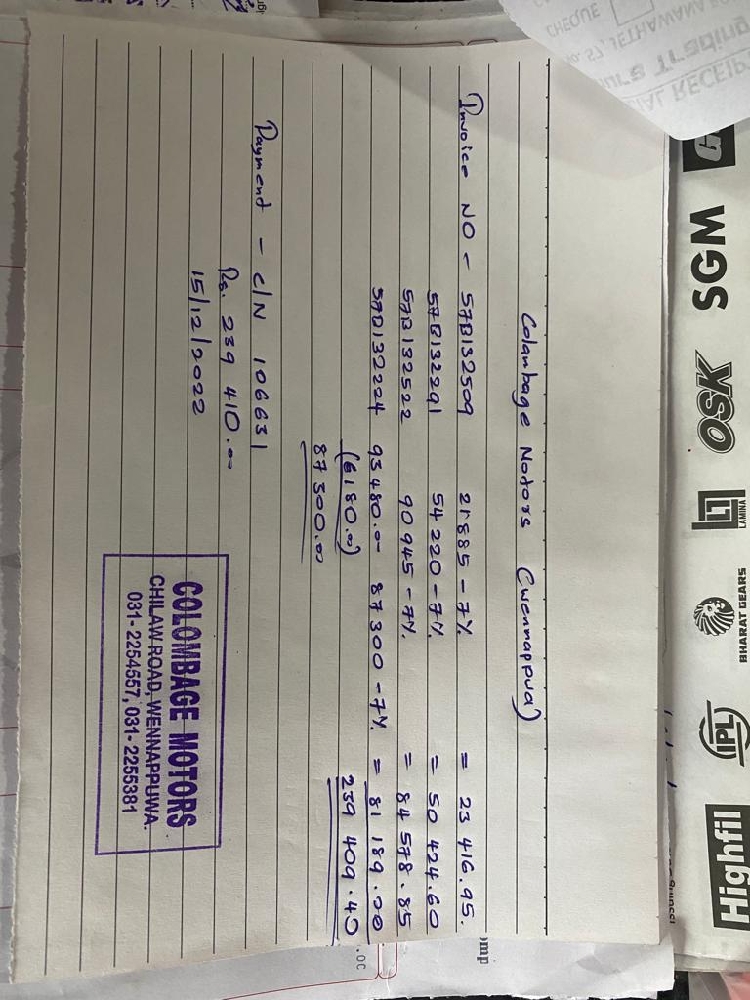 Colambage Notors (wennappua)
Invoice NO - 57B132509 21885 - 7% = 23 416.95.
57B132291 54 220 - 7% = 50 424.60
57B132522 90 945 - 7% = 84 578.85
57B132224 93 480.00 87 300 - 7% = 81 189.00
(6180.00) 239 409.40
87 300.00
Payment - c/N 106631
Rs. 239 410.00
15/12/2022
COLOMBAGE MOTORS
CHILAW ROAD, WENNAPPUWA.
031- 2254557, 031- 2255381
SGM
OSK
LAMINA
BHARAT GEARS
IPL
Highfil
CHEQUE
Trading
RECEIPT